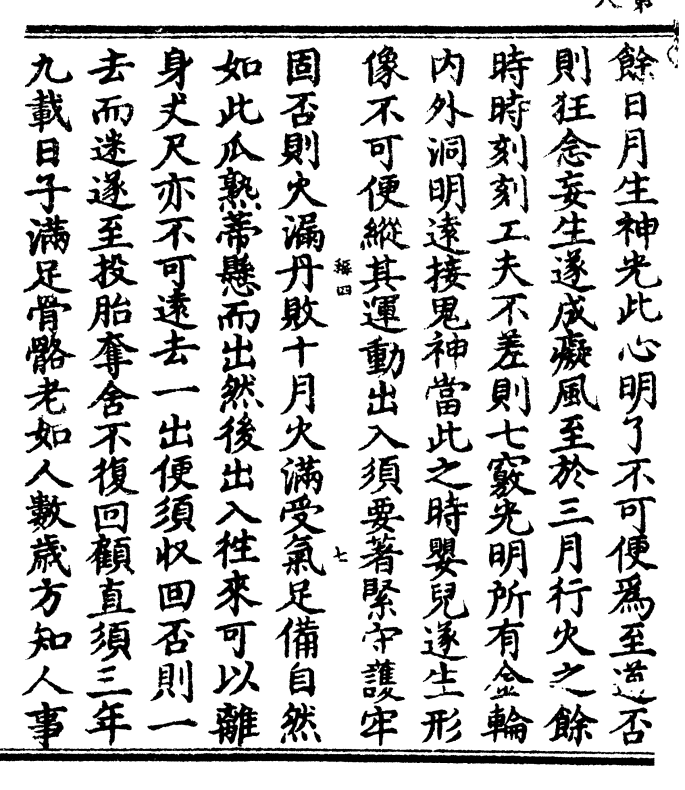 餘日月生神光此心明了不可便爲至道否
則狂念妄生遂成癡風至於三月行火之餘
時時刻刻工夫不差則七竅光明所有金輪
内外洞明遠接鬼神當此之時嬰兒遂生形
像不可便縱其運動出入須要著緊守護牢
稱四 七
固否則火漏丹敗十月火滿受氣足備自然
如此瓜熟蒂懸而出然後出入徃來可以離
身丈尺亦不可遠去一出便須収回否則一
去而迷遂至投胎奪舍不復回顧直須三年
九載日子滿足骨骼老如人數歲方知人事